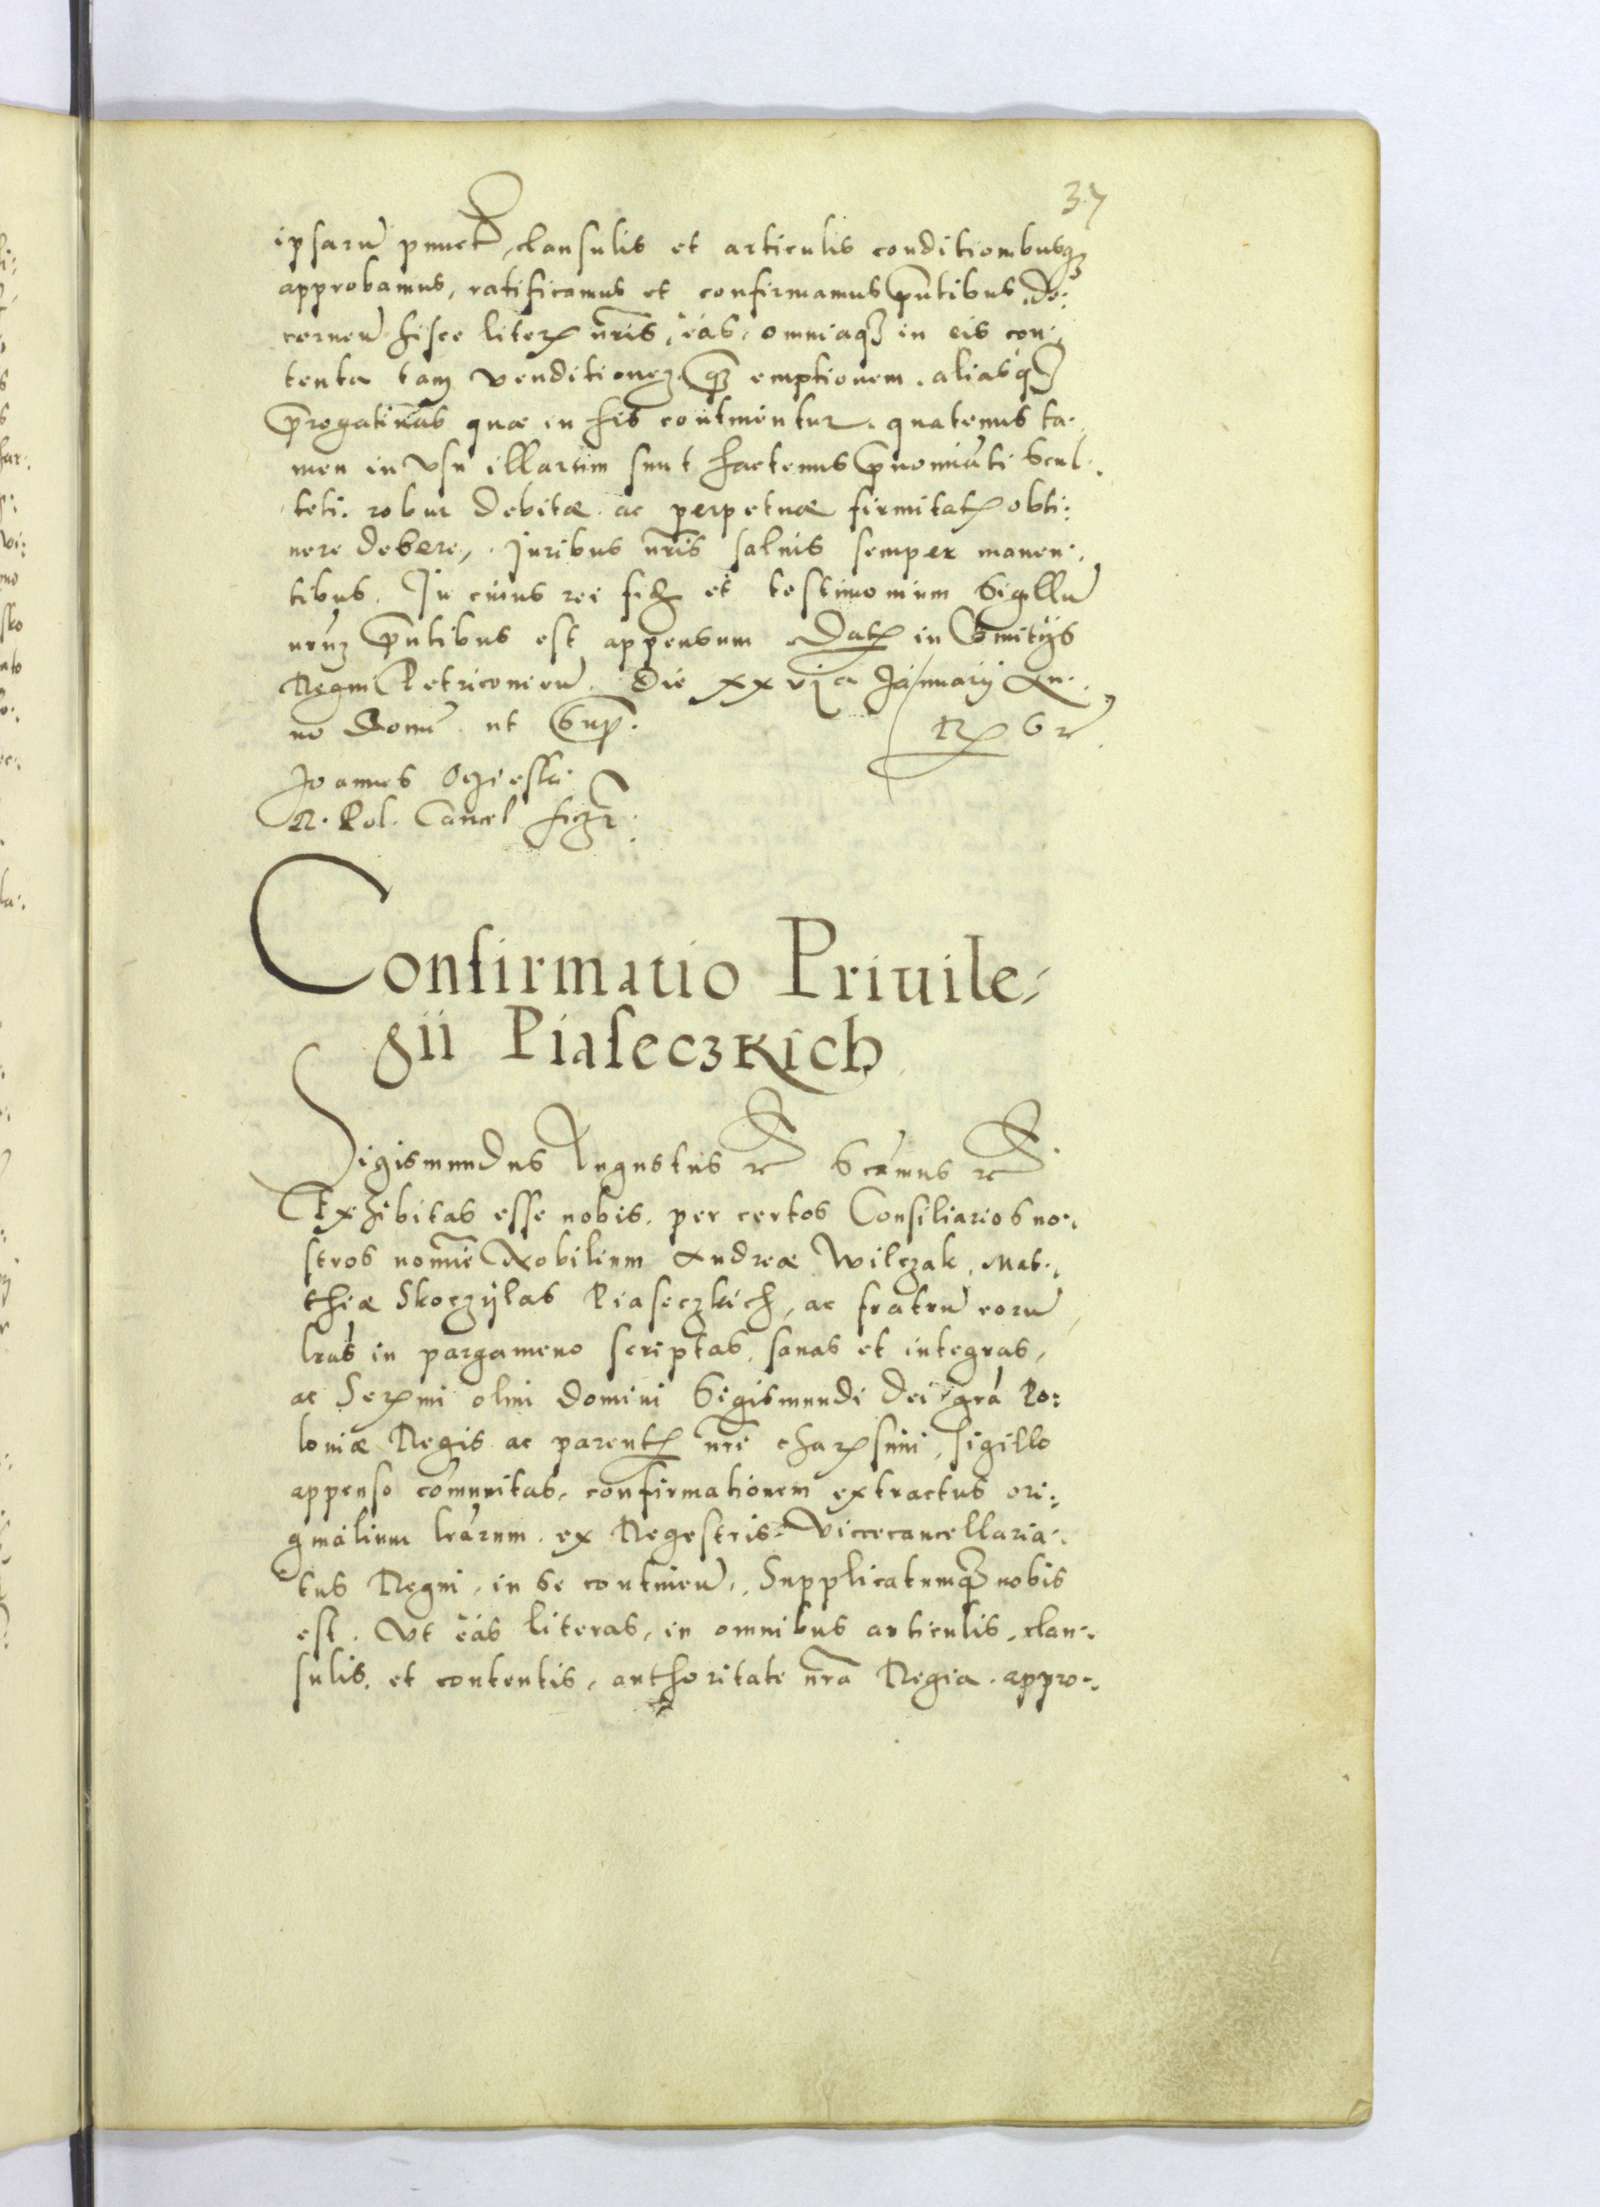 37
ipsarū punct, clausulis et articulis conditionibusq3
approbamus, ratificamus et confirmamus pñtibus, de:
cernen̄ hisce literꝭ nr̄is, eas, omniaq3 in eis con:
tenta tam venditionem q3 emptionem, aliasq3
p̄rogatiuas quæ in his continentur, quatenus ta:
men in vsu illarum sunt hactenus p̄nominati Scul:
teti, robur debitæ ac perpetuæ firmitatꝭ obti:
nere debere, Iuribus nr̄is saluis semper manen:
tibus. In cuius rei fid3 et testimonium Sigillū
nrūm pñtibus est appensum Datꝭ in Comitijs
Regni Petriconien̄. Die xxvja January An:
no Domī ut Sup.
Joannes Oczieski
R. Pol. Cancel
Confirmatio Priuile:
gii Piaseczkich
Sigismundus Augustus rc Scimus rc
Exhibitas esse nobis, per certos Consiliarios no:
stros nomīe Nobilium Andreæ Wilczak, Mat:
thiæ Skoczÿlas Piaseczkich, ac fratrū eorū
lrās in pargameno scriptas, sanas et integras,
ac Serꝭmi olim domini Sigismundi Dei grā Po:
loniæ Regis ac parentꝭ nrī charꝭsimi, sigillo
appenso cōmunitas, confirmationem extractus ori:
ginalium lrārum ex Regestris Vicecancellaria:
tus Regni, in se continen̄, Supplicatumq3 nobis
est. Vt eas literas, in omnibus articulis, clau:
sulis, et contentis, authoritate nr̄a Regia appro: